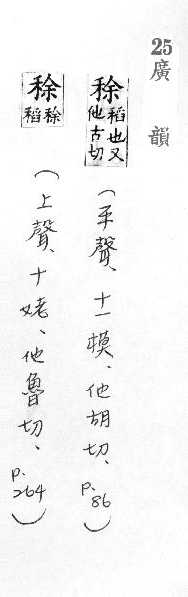 25 廣韻
稌 稻也又他古切 (平聲、十一模、他胡切、p.86)
稌 稌稻 (上聲、十姥、他魯切、p.264)